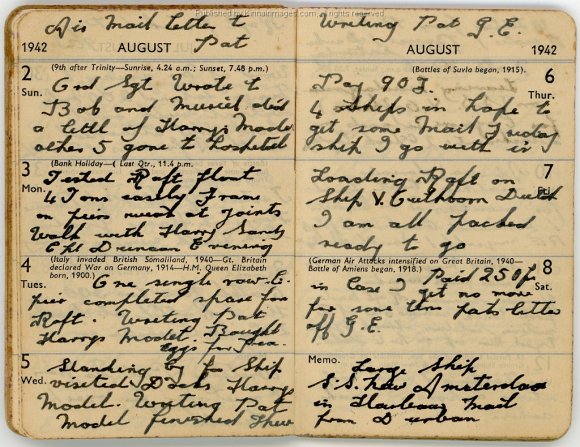 © Kinnairimages.com, all rights reserved
Air Mail lette to
Pat
1942 AUGUST
2 (9th after Trinity—Sunrise, 4.24 a.m.; Sunset, 7.48 p.m.)
Sun. Ord Sgt. Wrote to
Bob and Muriel did
a little of Harrys Model
other 5 gone to hospital
3 (Bank Holiday—☾ Last Qtr., 11.4 p.m.
Mon. Tested Raft Float
4 Tons easily Frame
on piers at joints
Walk with Harry Sandy
Cpl Duncan Evening
4 (Italy invaded British Somaliland, 1940—Gt. Britain
declared War on Germany, 1914—H.M. Queen Elizabeth
born, 1900.)
Tues. One single row.
pier completed space for
Raft. Writing Pat
Harrys Model. Bought
Eggs for Tea.
5 Standing by for Ship
Wed. visited Docks Harrys
Model. Writing Pat
Model finished
Writing Pat G.E.
AUGUST 1942
(Battles of Suvla began, 1915). 6
Thur.
Pay 90 F.
4 Ships in hope to
get some Mail Friday
ship I go with it
7
Fri.
Loading Raft on
Ship V. Dutch
I am all packed
ready to go
(German Air Attacks intensified on Great Britain, 1940— 8
Battle of Amiens began, 1918.) Paid 250 f
Sat.
in Case I get no more
for some time pats letter
off G.E.
Memo. Large Ship
S.S. New Amsterdam
in Harbour Mail
from Durban